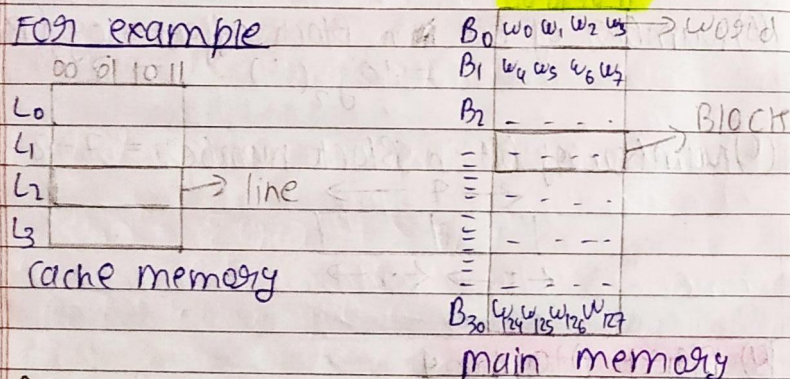 For example
00 01 10 11
L0
L1
L2 → line
L3
Cache memory
B0 w0 w1 w2 w3 → word
B1 w4 w5 w6 w7
B2 - - - .
BLOCK
B30 w124 w125 w126 w127
main memory